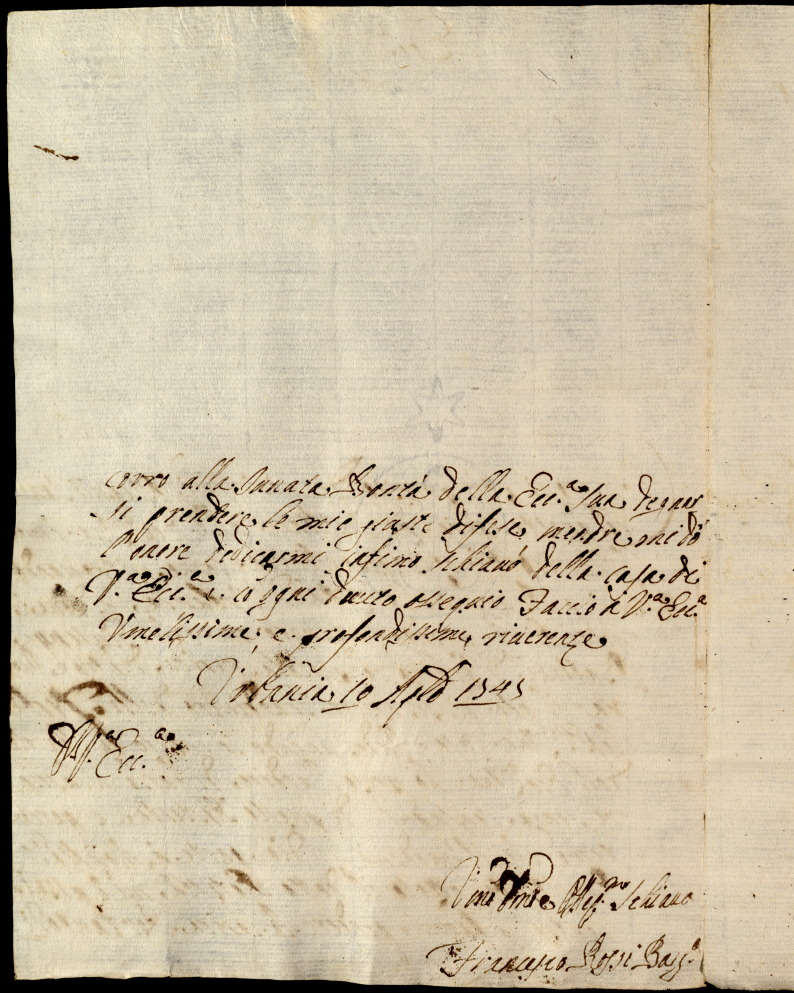 corro alla Innata Bontà della Ecc.a Sua degnar
si prendere le mie giuste difese, mentre mi dò
l'onore dedicarmi infimo schiauo della casa di
V.a Ecc.a e co ogni douuto ossequio Faccio à V.a Ecc.a
Vmelissime, e profondissime riuerenze
Vrbania 10 Ap.
D. V.a Ecc.a
Schiauo
Francesco Rossi